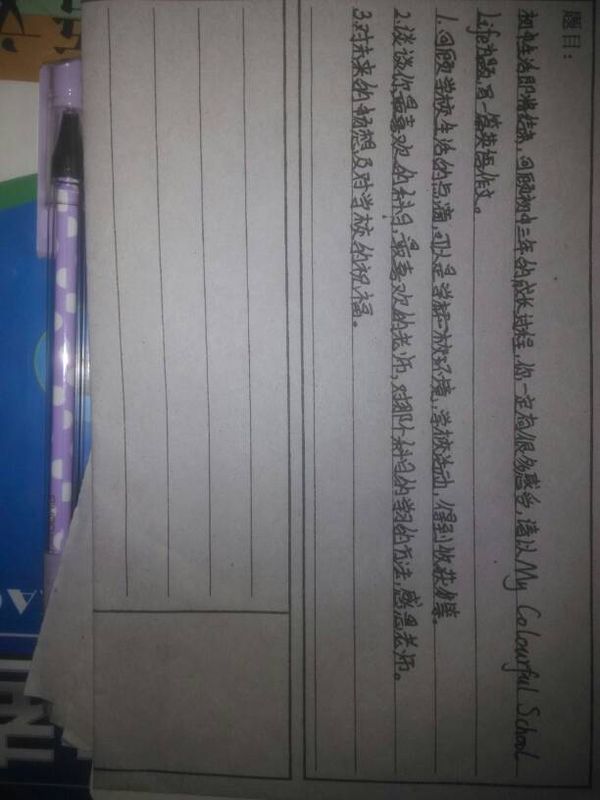 题目：
初中生活即将结束，回顾初中三年的成长过程，你一定有很多感受，请以My Colourful School
Life为题，写一篇英语作文。
1.回顾学校生活的点滴，可以是学校环境，学校活动，得到收获等。
2.谈谈你最喜欢的科目，最喜欢的老师，对那个科目的学习的方法，感恩老师。
3.对未来的畅想及对学校的祝福。